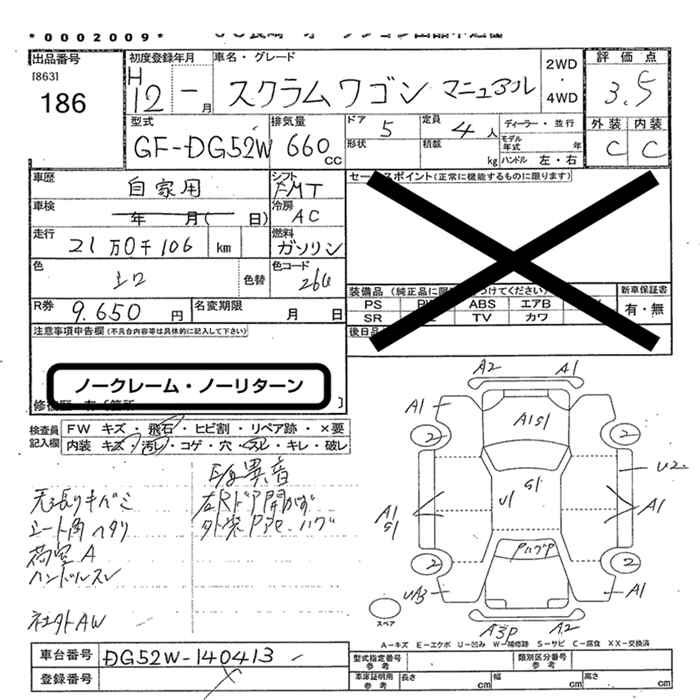 *0002009*
出品番号
[863]
186
初度登録年月
H
12 - 月
車名・グレード
スクラムワゴン マニュアル
2WD
・
4WD
評価点
3.5
型式
GF-DG52W
排気量
660 cc
ドア
5
形状
定員
4人
積載
kg
ディーラー・並行
モデル年式 年
ハンドル 左・右
外装 内装
C C
車歴
自家用
シフト
FMT
車検
年 月( 日)
冷房
AC
走行
21万0千106 km
燃料
ガソリン
色
シロ
色替
色コード
26U
R券
9.650 円
名変期限
月 日
セールスポイント(正常に機能するものに限ります)
新車保証書
有・無
PS
ABS
エアB
SR
TV
カワ
注意事項申告欄(不具合内容等は具体的に記入して下さい)
ノークレーム・ノーリターン
検査員記入欄
FW キズ・飛石・ヒビ割・リペア跡・×要
内装 キズ・汚レ・コゲ・穴・スレ・キレ・破レ
異音
左Rドア開かず
シート角ヘタリ
荷室A
ハンドルスレ
社外AW
A2 A1
A1
A1S1
2 2
U2
S1
U1
A1
S1
A1
2 2
UA3
A1
A3P A2
スペア
A-キズ E-エクボ U-凹み W-補修跡 S-サビ C-腐食 XX-交換済
車台番号
DG52W-140413
登録番号
型式指定番号
参考
類別区分番号
参考
車庫証明用
参考
長さ cm
幅 cm
高さ cm